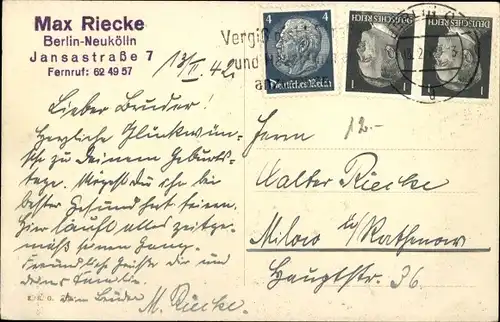 Max Riecke
Berlin-Neukölln
Jansastraße 7
Fernruf: 62 49 57
13/II. 42.
Vergiß
und
4 4
Deutsches Reich
DEUTSCHES REICH
1 1
DEUTSCHES REICH
1 1
Lieber Bruder!
Herzliche Glückwün-
sche zu Deinem Geburts-
tage. Mögest Du ihn bei
bester Gesundheit feiern.
Hier läuft alles zeitge-
mäß seinen Gang.
Freundliche Grüße dir und
deiner Familie.
Dein Bruder
M. Riecke.
12.-
Herrn
Walter Riecke
Milow b/Rathenow
Hauptstr. 36